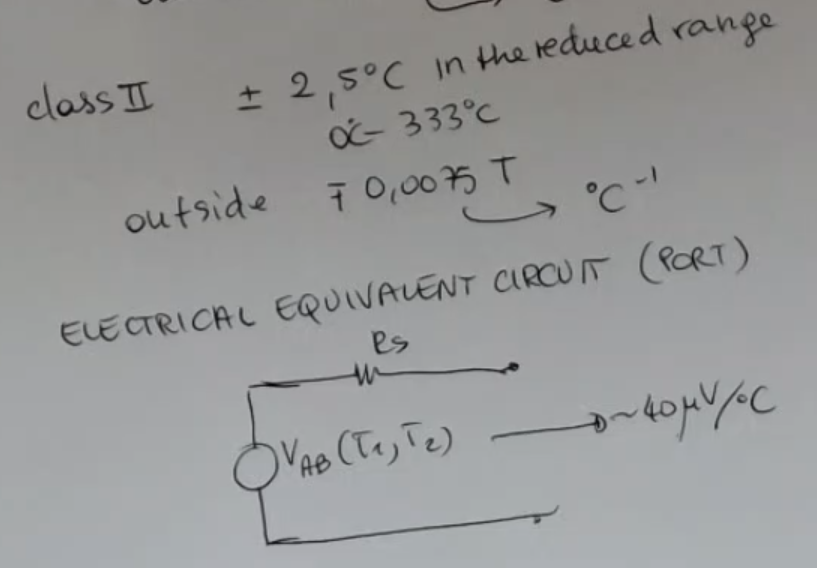 class II ± 2,5°C in the reduced range
0°C - 333°C
outside ∓ 0,0075 T → °C⁻¹
ELECTRICAL EQUIVALENT CIRCUIT (PORT)
Rs
V_AB (T₁, T₂) → ~40μV/°C